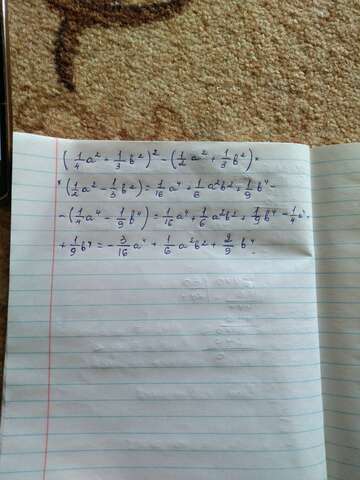 (1/4 a² + 1/3 b²)² - (1/2 a² + 1/3 b²) ·
· (1/2 a² - 1/3 b²) = 1/16 a⁴ + 1/6 a²b² + 1/9 b⁴ -
- (1/4 a⁴ - 1/9 b⁴) = 1/16 a⁴ + 1/6 a²b² + 1/9 b⁴ - 1/4 a⁴
+ 1/9 b⁴ = - 3/16 a⁴ + 1/6 a²b² + 2/9 b⁴.